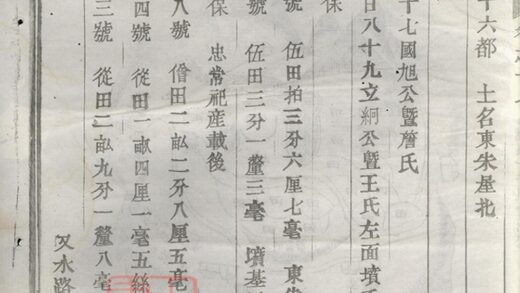 十六部 土名東朱屋北
十七國旭公暨詹氏
八十九立綱公暨王氏左面墳
保
號 伍田拍三分六厘七毫 東
號 伍田三分一釐三毫 墳基
保 忠常祀產載後
八號 僧田二畝二分八厘五毫
四號 從田一畝四厘一毫五絲
三號 從田二畝九分一釐八毫
又水路